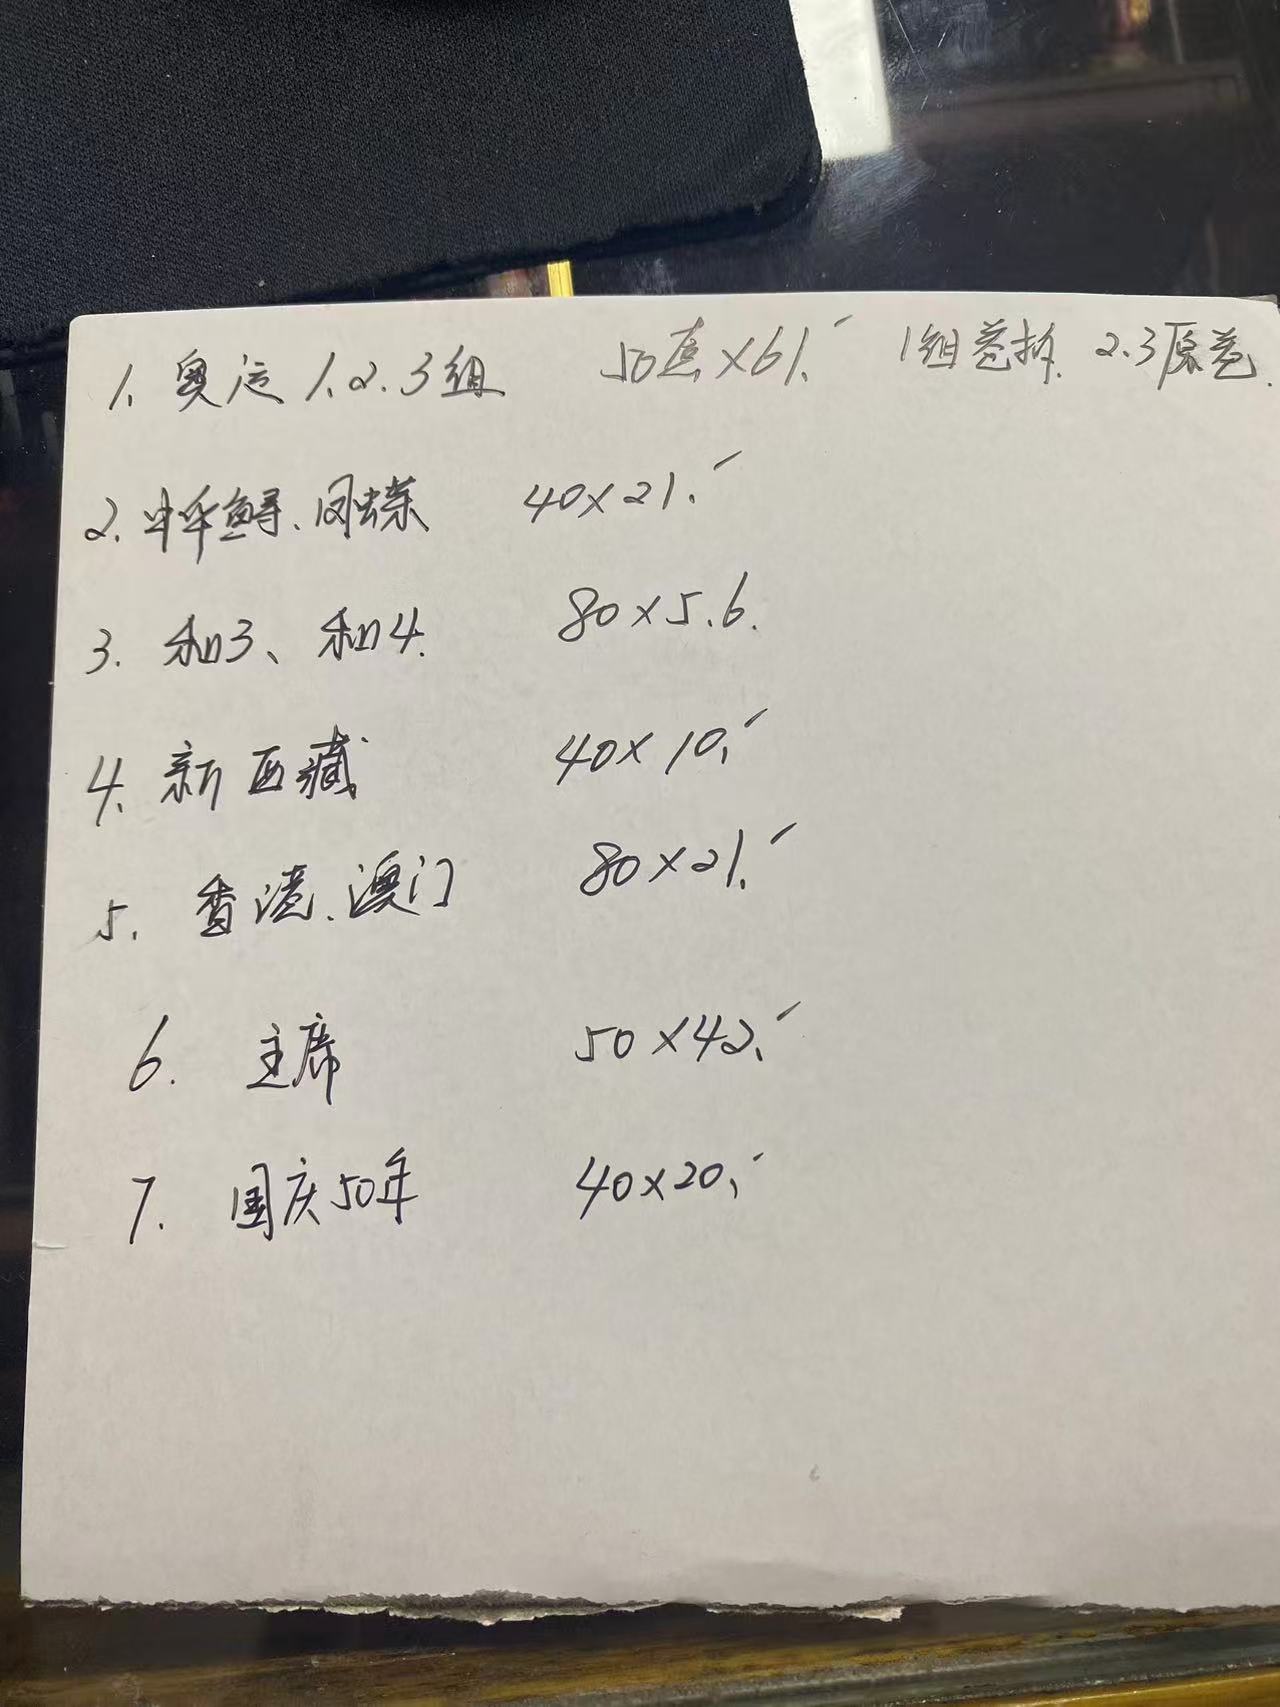 1. 奥运 1.2.3组 50套×61. 1组卷拆. 2.3原卷.
2. 中华鲟. 凤蝶 40×21.
3. 和3、和4. 80×5.6.
4. 新西藏 40×10.
5. 香港. 澳门 80×21.
6. 主席 50×42.
7. 国庆50年 40×20.